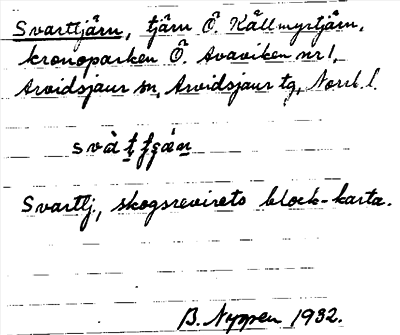 Svarttjärn, tjärn Ö. Källmyrtjärn,
kronoparken Ö. Avaviken nr 1,
Arvidsjaur sn, Arvidsjaur tg, Norrb. l.
svàt
Svarttj., skogsrevirets block-karta.
B. Nyppen 1932.